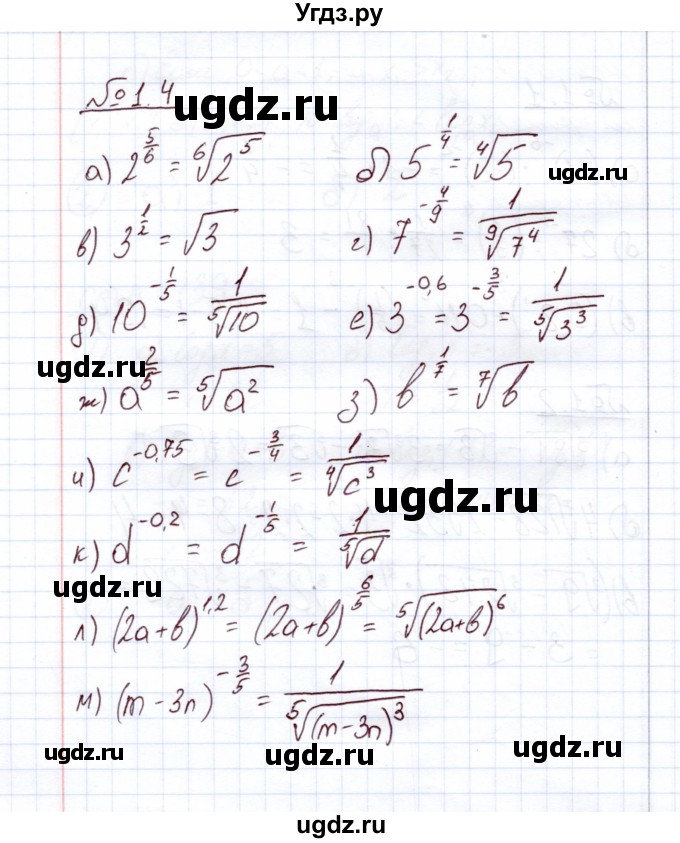 Угдз.ру
№ 1.4
ugdz.ru
а) 2^(5/6) = ⁶√(2⁵) б) 5^(1/4) = ⁴√5
ugdz.ru ugdz.ru
в) 3^(1/2) = √3 г) 7^(-4/9) = 1/⁹√(7⁴)
д) 10^(-1/5) = 1/⁵√10 е) 3^(-0,6) = 3^(-3/5) = 1/⁵√(3³)
ugdz.ru ugdz.ru
ж) a^(2/5) = ⁵√(a²) з) b^(1/7) = ⁷√b
и) c^(-0,75) = c^(-3/4) = 1/⁴√(c³)
ugdz.ru
к) d^(-0,2) = d^(-1/5) = 1/⁵√d
ugdz.ru ugdz.ru
л) (2a+b)^(1,2) = (2a+b)^(6/5) = ⁵√((2a+b)⁶)
м) (m-3n)^(-3/5) = 1/⁵√((m-3n)³)
ugdz.ru ugdz.ru
ugdz.ru